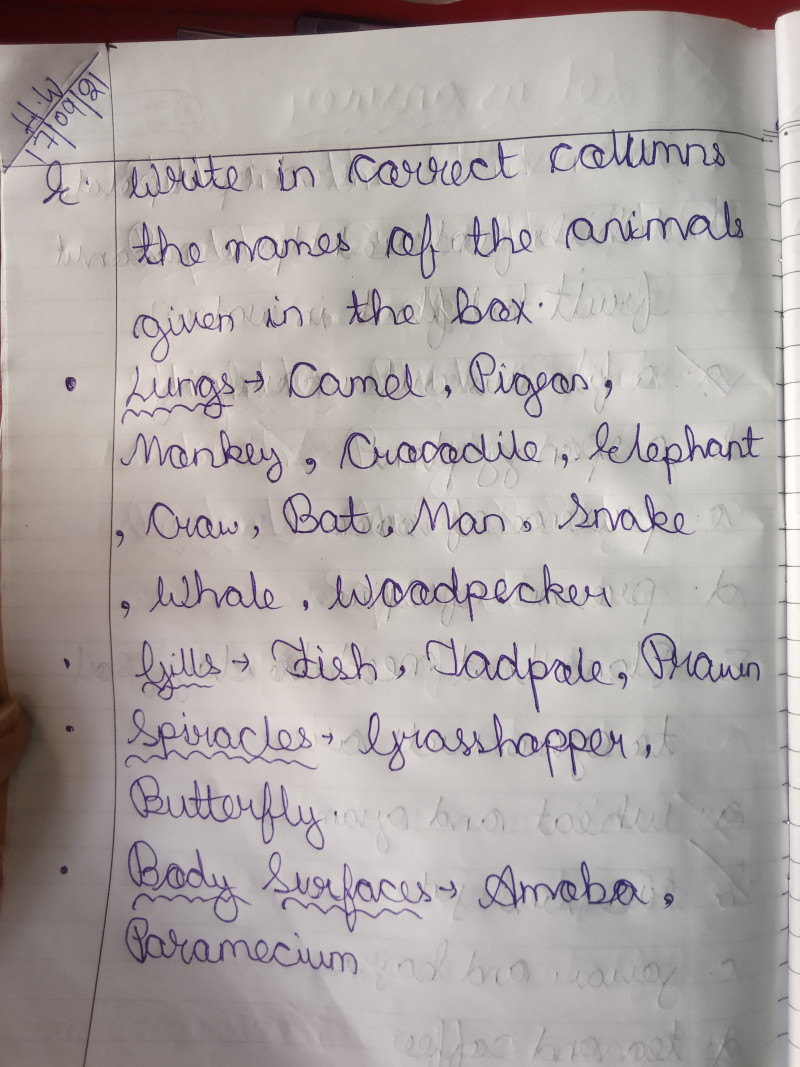 H.W
17/09/21
E. Write in correct columns
the names of the animals
given in the box.
• Lungs → Camel, Pigeon,
Monkey, Crocodile, Elephant
, Crow, Bat, Man, Snake
, Whale, Woodpecker
• Gills → Fish, Tadpole, Prawn
• Spiracles → Grasshopper,
Butterfly.
• Body Surfaces → Amoeba,
Paramecium